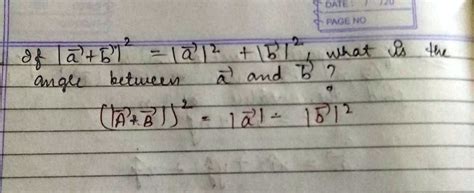 DATE: / /20
PAGE NO
If |a⃗+b⃗|² = |a⃗|² + |b⃗|², what is the
angle between a⃗ and b⃗ ?
(|A⃗+B⃗|)² = |a⃗| - |b⃗|²